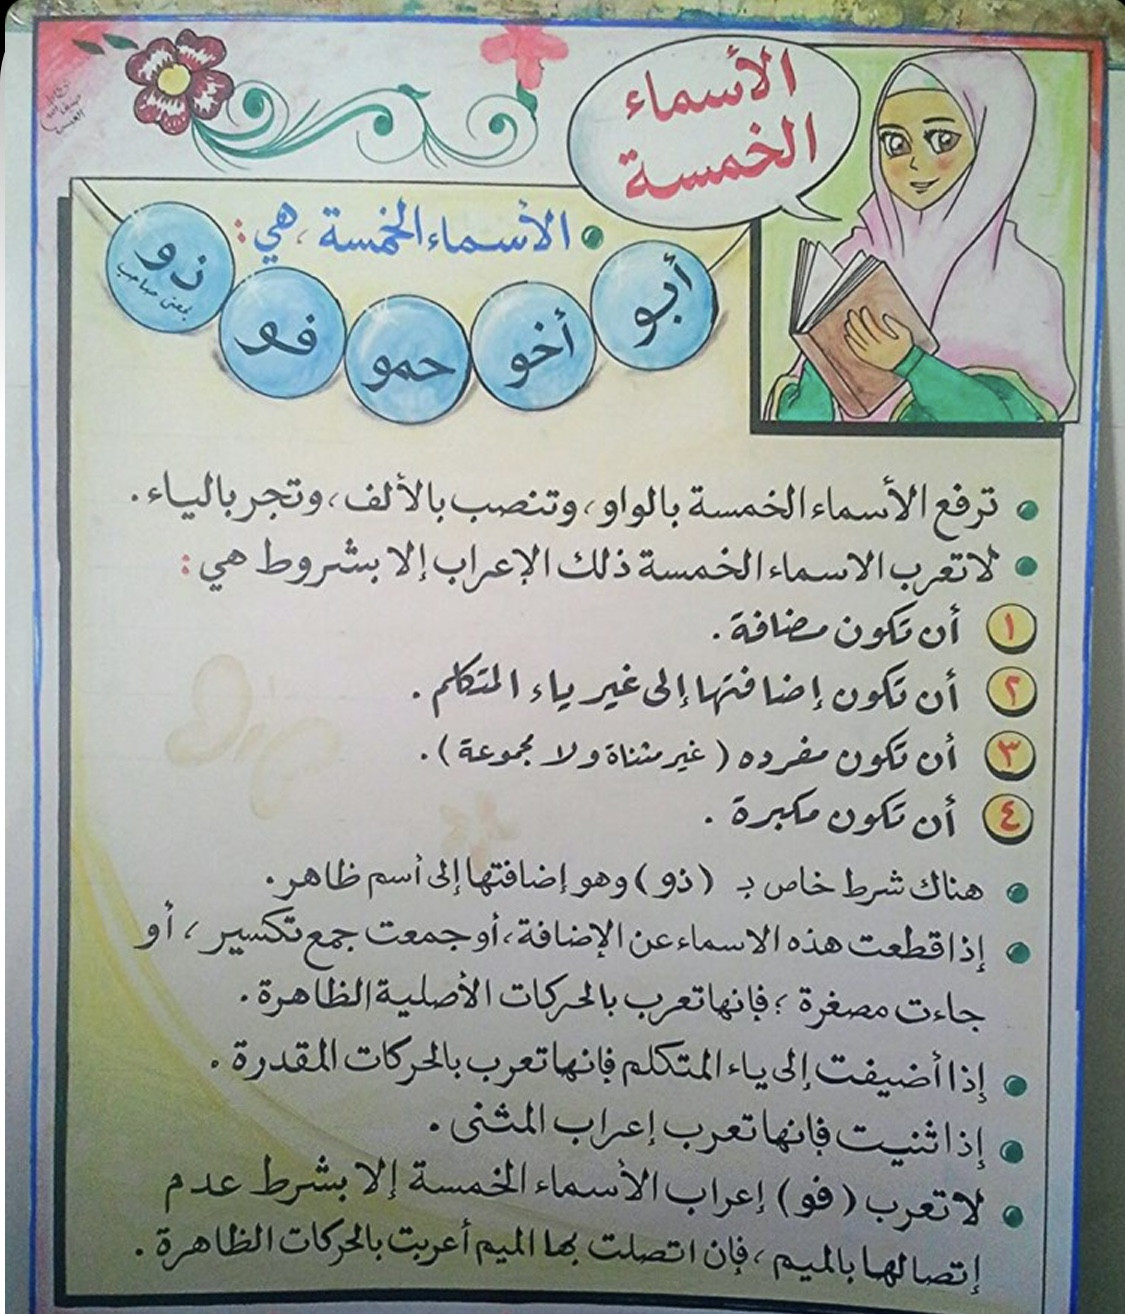 الأسماء
الخمسة
الأسماء الخمسة ، هي :
أبو
أخو
حمو
فو
ذو
بمعنى صاحب
ترفع الأسماء الخمسة بالواو ، وتنصب بالألف ، وتجر بالياء .
لا تعرب الاسماء الخمسة ذلك الإعراب إلا بشروط هي :
١ أن تكون مضافة .
٢ أن تكون إضافتها إلى غير ياء المتكلم .
٣ أن تكون مفرده ( غير مثناة ولا مجموعة ) .
٤ أن تكون مكبرة .
هناك شرط خاص بـ (ذو) وهو إضافتها إلى أسم ظاهر .
إذا قطعت هذه الاسماء عن الإضافة ، أو جمعت جمع تكسير ، أو
جاءت مصغرة ؛ فإنها تعرب بالحركات الأصلية الظاهرة .
إذا أضيفت إلى ياء المتكلم فإنها تعرب بالحركات المقدرة .
إذا ثنيت فإنها تعرب إعراب المثنى .
لا تعرب (فو) إعراب الأسماء الخمسة إلا بشرط عدم
إتصالها بالميم ، فإن اتصلت بها الميم أعربت بالحركات الظاهرة .